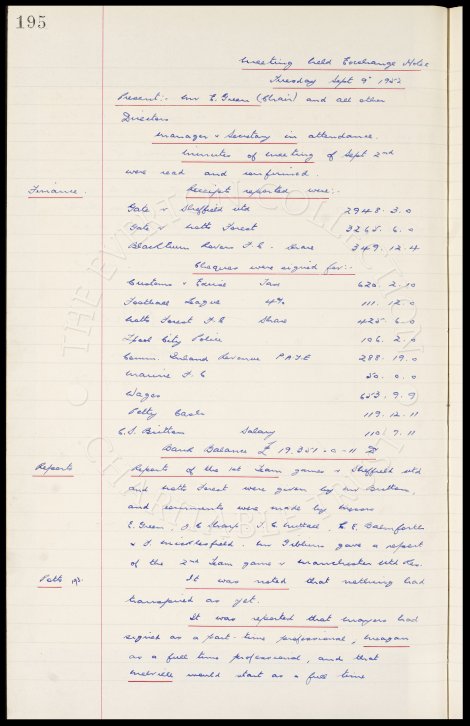 195
Meeting held Exchange Hotel
Tuesday Sept 9th 1952
Present:- Mr E. Green (Chair) and all other
Directors
Manager & Secretary in attendance.
Minutes of meeting of Sept 2nd
were read and confirmed.
Finance. Receipts reported were:-
Gate v Sheffield Utd 2948. 3. 0
Gate v Notts Forest 3265. 6. 0
Blackburn Rovers F.C. Share 349. 12. 4
Cheques were signed for:-
Customs & Excise Tax 620. 2. 10
Football League 4% 111. 12. 0
Notts Forest F.C Share 425. 6. 0
Lpool City Police 106. 2. 0
Comm. Inland Revenue P.A.Y.E 288. 19. 0
Marine F.C 50. 0. 0
Wages 653. 9. 9
Petty Cash 119. 12. 11
C.S. Britton Salary 110. 9. 11
Bank Balance £ 19,351 - 0 - 11
Reports Reports of the 1st Team games v Sheffield Utd
and Notts Forest were given by Mr Britton,
and comments were made by Messrs
E. Green, J.C Sharp, T.C. Nuttall, C.E. Balmforth
& F. Micklesfield. Mr Gibbins gave a report
of the 2nd Team game v Manchester Utd Res.
Potts It was noted that nothing had
transpired as yet.
It was reported that Mayers had
signed as a part-time professional, Meagan
as a full time professional, and that
Melville would start as a full time
THE EVERTON COLLECTION
CHARITABLE TRUST